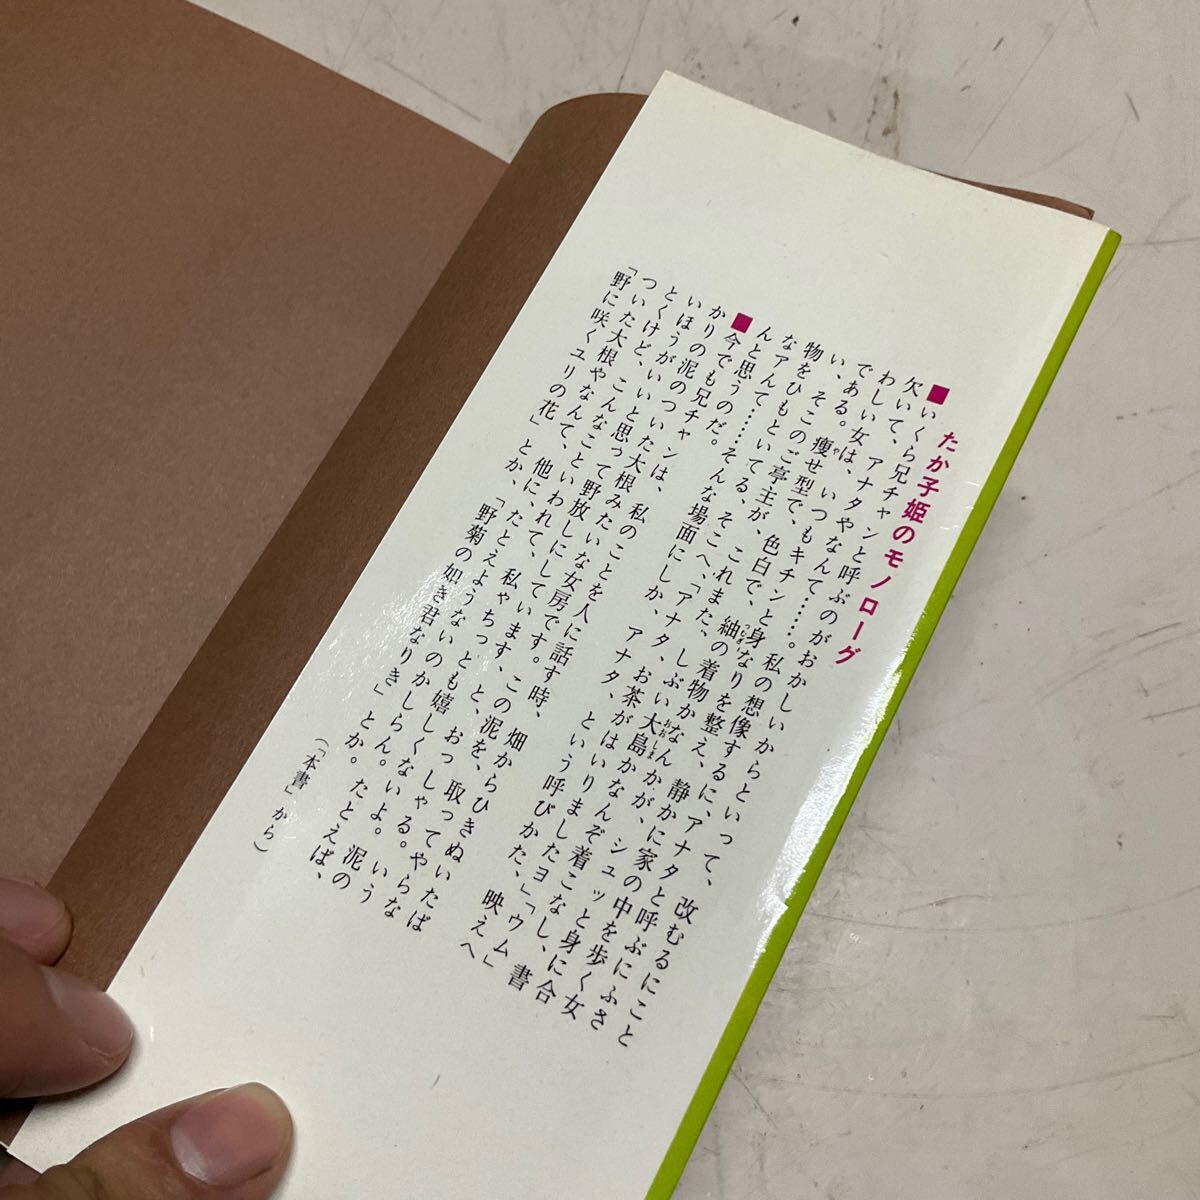 たか子姫のモノローグ
■いくら兄チャンと呼ぶのがおかしいからといって、改むるにこと
欠いて、アナタやなんて……。私の想像するに、アナタと呼ぶにふさ
わしい女は、いつもキチンと身なりを整え、静かに家の中を歩く女
である。痩せ型で、色白で、紬の着物かなんかが、シュッと身に合
い、そこのご亭主が、これまた、しぶい大島かなんぞ着こなし、書
物をひもといてる、そこへ、「アナタ、お茶がはいりましたヨ」「ウム」
なアんて……そんな場面にしか、アナタ、という呼びかた、映えへ
んと思うのだ。
■今でも兄チャンは、私のことを人に話す時、畑からひきぬいたば
かりの泥のついた大根みたいな女房です。この泥を、取ってやらな
いほうがいいと思って野放しにしています、と、おっしゃる。いう
とくけど、こんなこといわれて、私やちっとも嬉しくないよ。泥の
ついた大根やなんて、他に、たとえようないのかしらん。たとえば、
「野に咲くユリの花」とか、「野菊の如き君なりき」とか。
（「本書」から）